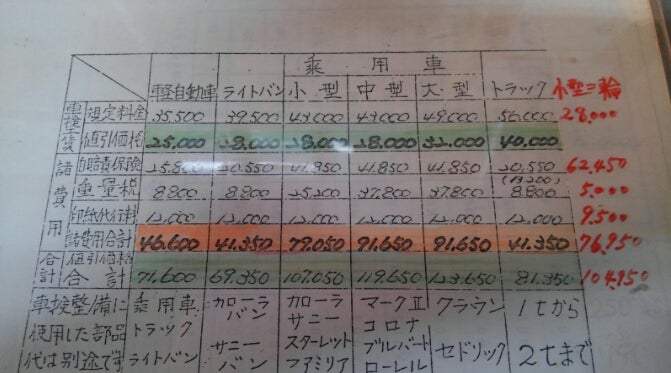 乗用車
軽自動車 ライトバン 小型 中型 大型 トラック 小型三輪
車検整 規定料金 35,500 39,500 43,000 43,000 49,000 56,000 28,000
値引価格 25,000 28,000 28,000 28,000 32,000 40,000
諸費用 自賠責保険 20,550 41,850 41,850 41,850 20,550 62,450
重量税 8,800 8,800 25,200 37,800 37,800 (13,200) 8,800 5,000
印紙代行料 12,000 12,000 12,000 12,000 12,000 12,000 9,500
諸費用合計 46,600 41,350 79,050 91,650 91,650 41,350 76,950
合計 値引価格
合計 71,600 69,350 107,050 119,650 123,650 81,350 104,950
車検整備に 乗用車 カローラ カローラ マークⅡ クラウン 1tから
使用した部品 トラック バン サニー コロナ
代は別途です ライトバン サニー スターレット ブルバート セドリック 2tまで
バン ファミリア ローレル